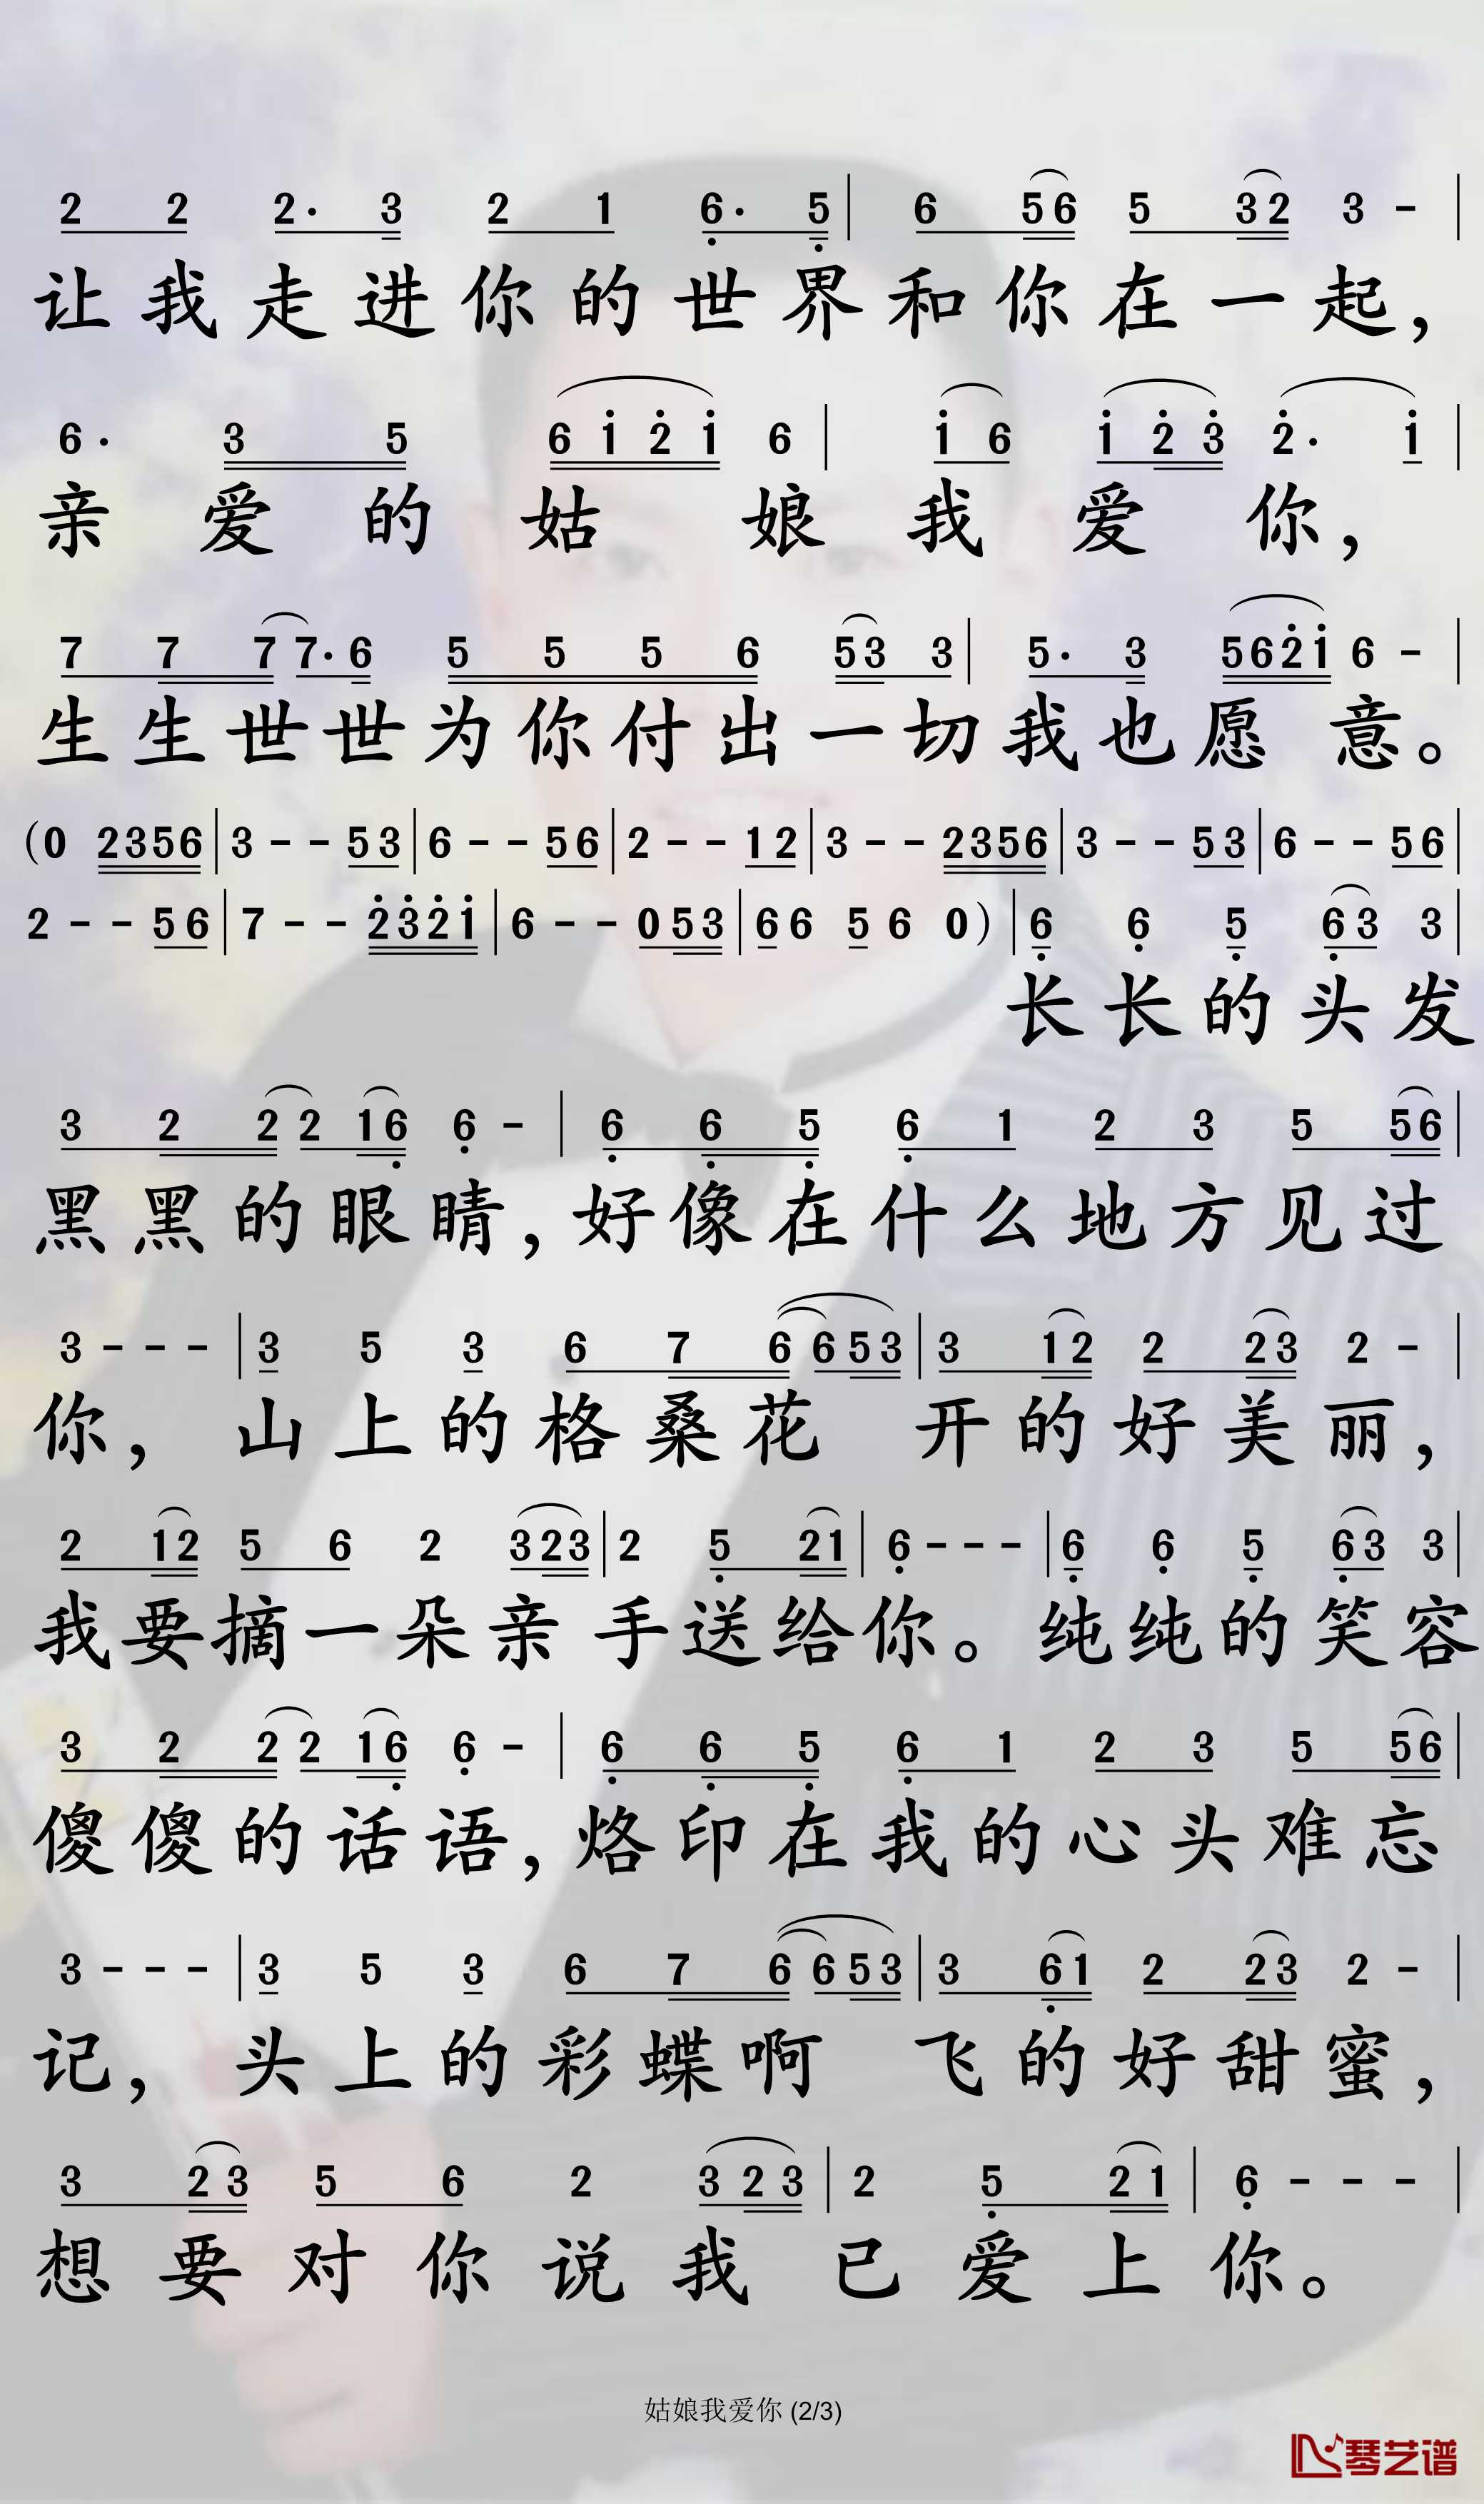 2 2 2· 3 2 1 6· 5 | 6 5 6 5 3 2 3 - |
让我走进你的世界和你在一起，
6· 3 5 6 1 2 1 6 | 1 6 1 2 3 2· 1 |
亲爱的姑娘我爱你，
7 7 7 7· 6 5 5 5 6 5 3 3 | 5· 3 5 6 2 1 6 - |
生生世世为你付出一切我也愿意。
(0 2356 | 3 - - 5 3 | 6 - - 5 6 | 2 - - 1 2 | 3 - - 2356 | 3 - - 5 3 | 6 - - 5 6 |
2 - - 5 6 | 7 - - 2321 | 6 - - 0 5 3 | 6 6 5 6 0) | 6 6 5 6 3 3 |
长长的头发
3 2 2 2 1 6 6 - | 6 6 5 6 1 2 3 5 5 6 |
黑黑的眼睛，好像在什么地方见过
3 - - - | 3 5 3 6 7 6 6 5 3 | 3 1 2 2 2 3 2 - |
你，山上的格桑花 开的好美丽，
2 1 2 5 6 2 3 2 3 | 2 5 2 1 | 6 - - - | 6 6 5 6 3 3 |
我要摘一朵亲手送给你。纯纯的笑容
3 2 2 2 1 6 6 - | 6 6 5 6 1 2 3 5 5 6 |
傻傻的话语，烙印在我的心头难忘
3 - - - | 3 5 3 6 7 6 6 5 3 | 3 6 1 2 2 3 2 - |
记，头上的彩蝶啊 飞的好甜蜜，
3 2 3 5 6 2 3 2 3 | 2 5 2 1 | 6 - - - |
想要对你说我已爱上你。
姑娘我爱你 (2/3)
琴艺谱